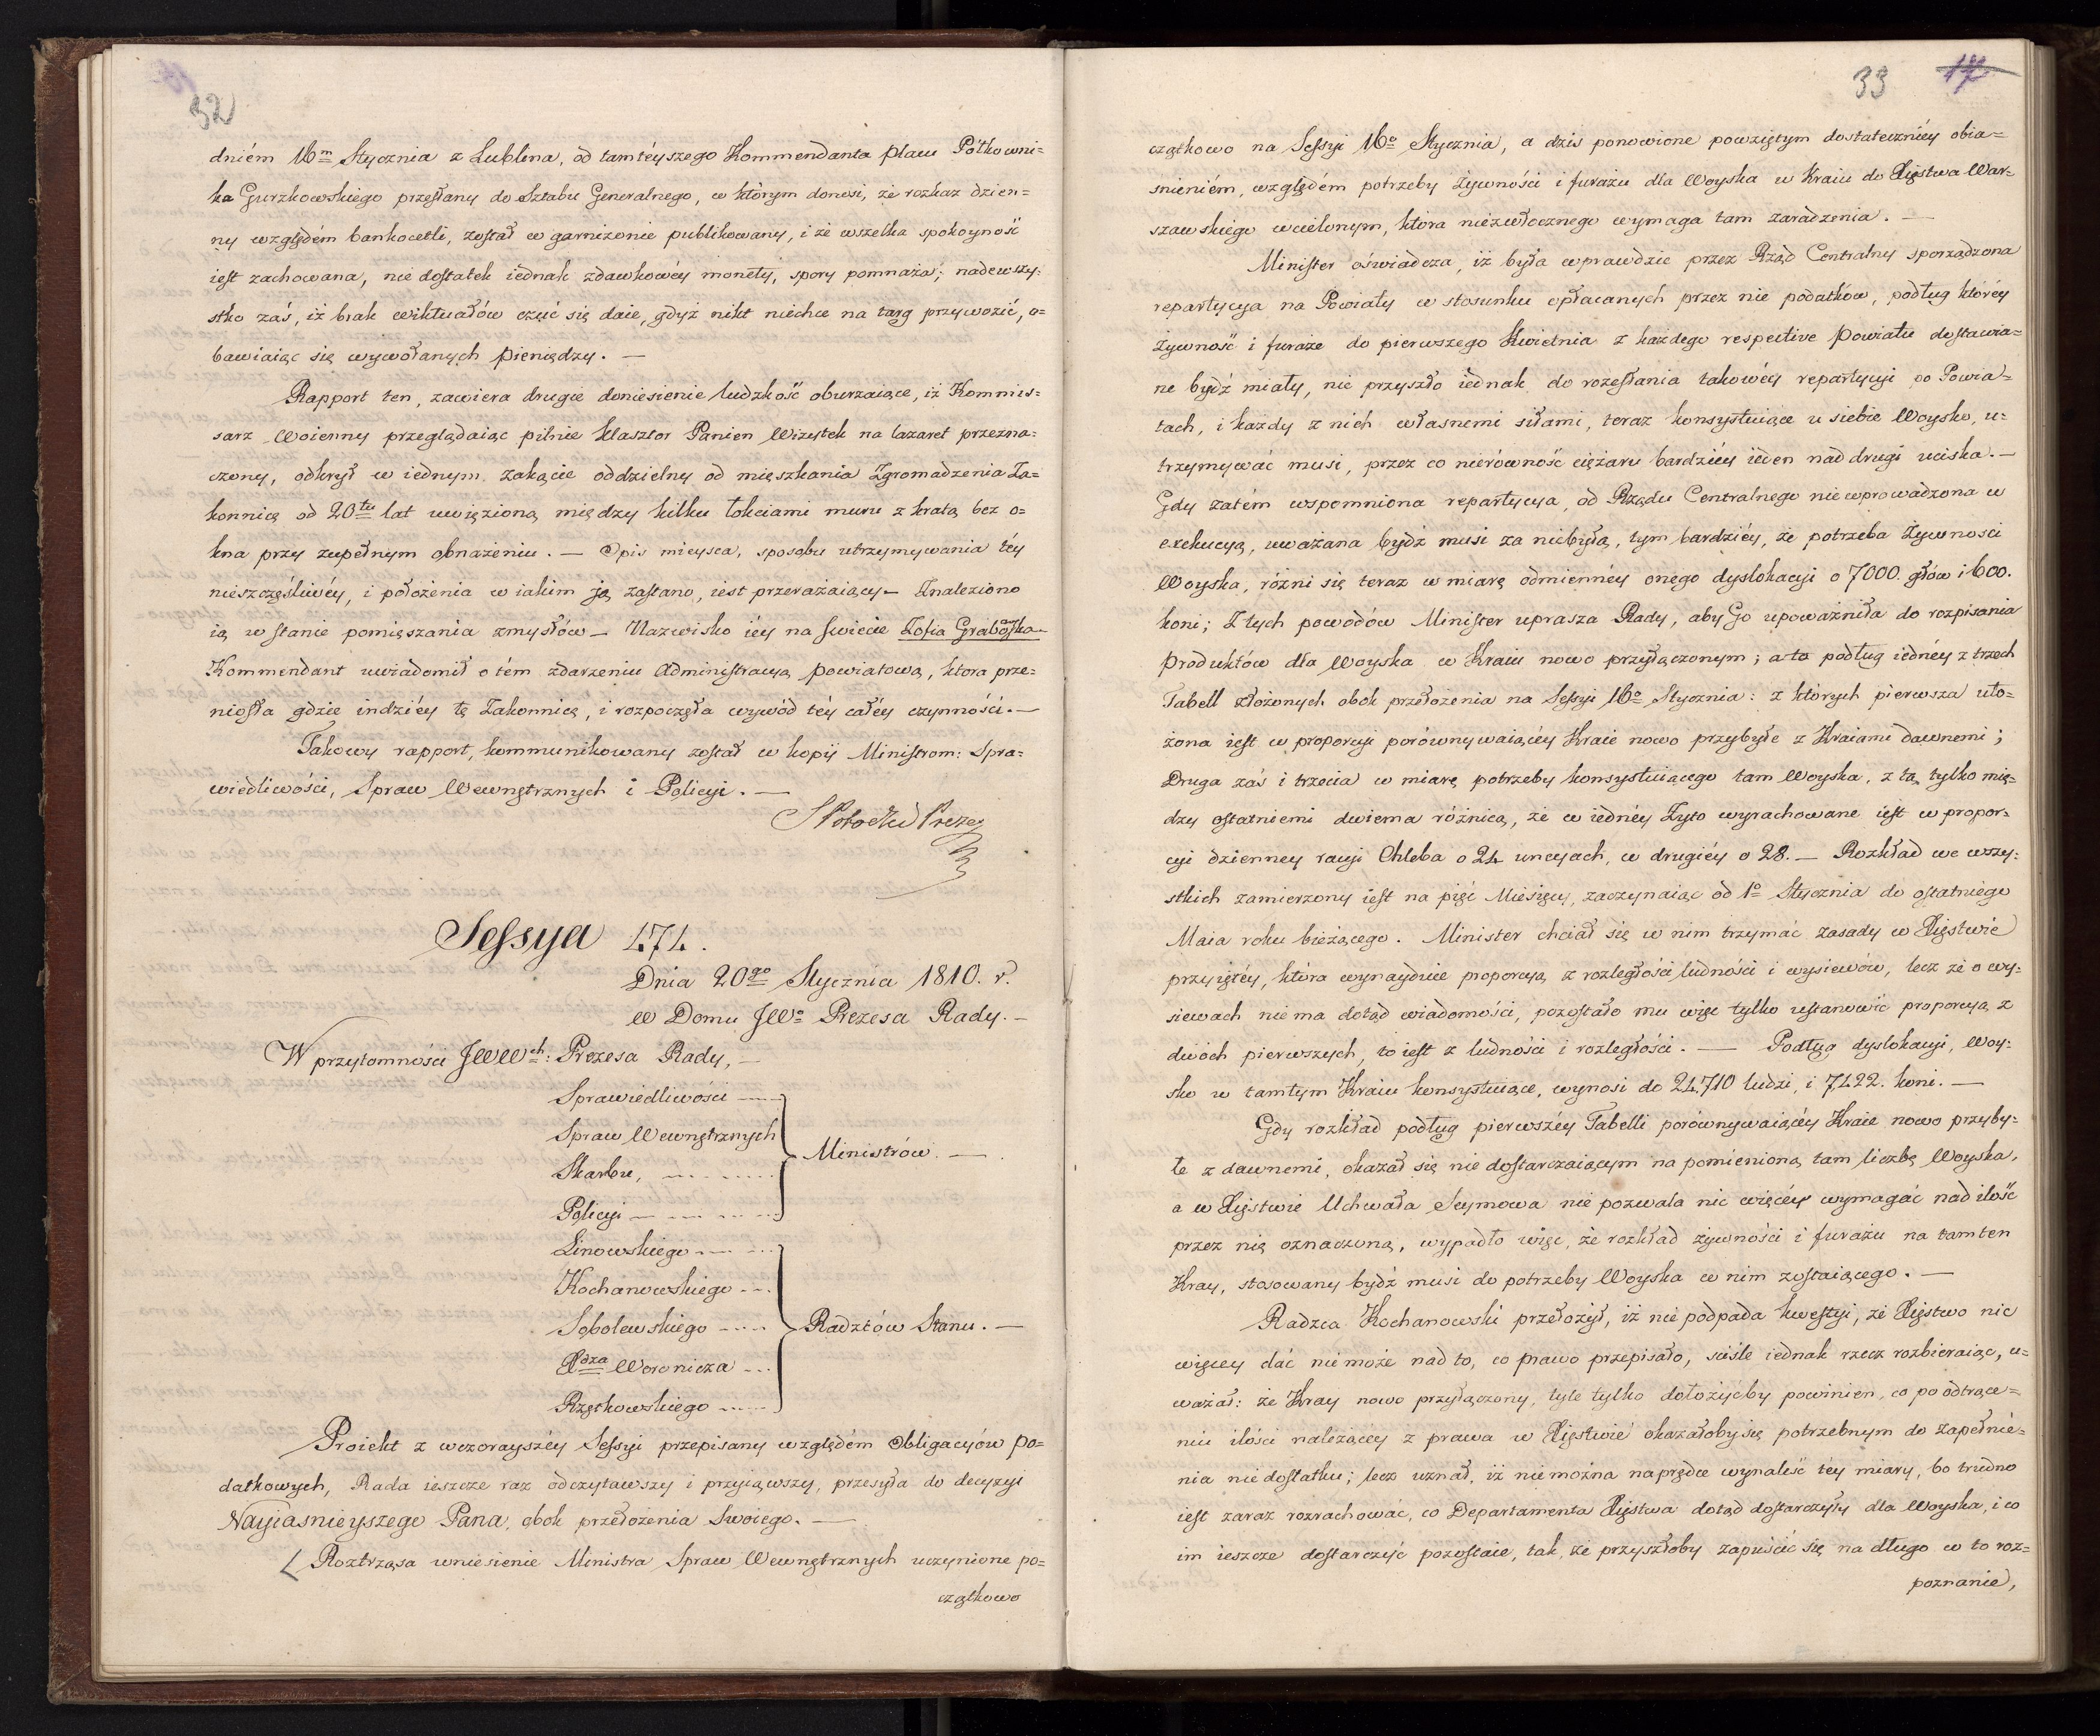 32
dniém 16m Stycznia z Lublina, od tamtéyszego Kommendanta placu Półkowni=
ka Gurzkowskiego przesłany do Sztabu Generalnego, w którym donosi, że rozkaz dzien=
ny względém bankocetli, został w garnizonie publikowany, i że wszelka spokoyność
iest zachowana, nie dostatek iednak zdawkowéy monety, spory pomnaża; nadewszy=
stko zaś, iż brak wiktuałów czuć się daie, gdyż nikt niechce na targ przywozić, o=
bawiaiąc się wywołanych pieniędzy. —
Rapport ten, zawiera drugie doniesienie ludzkość oburzaiące, iż Kommis=
sarz Woienny przeglądaiąc pilnie klasztor Panien Wizytek na lazaret przezna=
czony, odkrył w iednym zakącie oddzielny od mięszkania Zgromadzenia Za=
konnicę od 20tu lat uwięzioną między kilku łokciami muru z kratą bez o=
kna przy zupełnym obnażeniu. — Opis mieysca, sposobu utrzymywania téy
nieszczęśliwéy, i położenia w iakim ją zastano, iest przerażaiący — Znaleziono
ią w stanie pomięszania zmysłów — Nazwisko iéy na swiecie Zofia Grabówska —
Kommendant uwiadomił o tém zdarzeniu Administracyą powiatową, ktora prze=
niosła gdzie indziéy tę Zakonnicę, i rozpoczęła wywód téy całéy czynności. —
Takowy rapport, kommunikowany został w kopij Ministrom: Spra=
wiedliwości, Spraw Wewnętrznych i Policyi. —
SPotocki Prezes
Sessya 474.
Dnia 20go Stycznia 1810. r.
w Domu JWo Prezesa Rady. —
W przytomności JWWch: Prezesa Rady, —
Sprawiedliwości
Spraw Wewnętrznych
Skarbu,
Policyi
Ministrów. —
Linowskiego
Kochanowskiego
Sobolewskiego
Xdza Woronicza
Rzętkowskiego
Radzców Stanu. —
Proiekt z wczorayszéy Sessyi przepisany względém Obligacyów po=
datkowych, Rada ieszcze raz odczytawszy i przyiąwszy, przesyła do decyzyi
Nayiasnieyszego Pana, obok przełożenia Swoiego. —
Roztrząsa wniesienie Ministra Spraw Wewnętrznych uczynione po=
czątkowo
33 17
czątkowo na Sessyi 16o Stycznia, a dzis ponowione powziętym dostateczniéy obia=
snieniém, względém potrzeby żywności i furażu dla Woyska w Kraiu do Xięstwa War=
szawskiego wcielonym, która niezwłocznego wymaga tam zaradzenia. —
Minister oświadcza, iż była wprawdzie przez Rząd Centralny sporządzona
repartycya na Powiaty w stosunku opłacanych przez nie podatków, podług któréy
żywność i furaże do pierwszego Kwietnia z każdego respective Powiatu dostawia=
ne bydź miały, nie przyszło iednak do rozesłania takowéy repartycyi po Powia=
tach, i każdy z nich własnemi siłami, teraz konsystuiące u siebie Woysko, u=
trzymywać musi, przez co nierówność ciężaru bardziéy ieden nad drugi uciska. —
Gdy zatém wspomniona repartycya, od Rządu Centralnego niewprowadzona w
exekucyą, uważana bydź musi za niebyłą, tym bardziéy, że potrzeba Żywnosci
Woyska, różni się teraz w miarę odmiennéy onego dyslokacyi o 7000. głów i 600.
koni; Z tych powodów Minister uprasza Rady, aby Go upoważniła do rozpisania
produktów dla Woyska w Kraiu nowo przyłączonym; a to podług iednéy z trzech
Tabell złożonych obok przełożenia na Sessyi 16o Stycznia: z których pierwsza uło=
żona iest w proporcyi porównywaiącéy Kraie nowo przybyłe z Kraiami dawnemi;
Druga zaś i trzecia w miarę potrzeby konsystuiącego tam Woyska, z tą tylko mię=
dzy ostatniemi dwiema różnicą, że w iednéy Żyto wyrachowane iest w propor=
cyi dzienney racyi Chleba o 24 uncyach, w drugiéy o 28. — Rozkład we wszy=
stkich zamierzony iest na pięć Miesięcy, zaczynaiąc od 1o Stycznia do ostatniego
Maia roku bieżącego. Minister chciał się w nim trzymać zasady w Xięstwie
przyiętéy, która wynayduie proporcyą z rozległości ludności i wysiewów, lecz że o wy=
siewach nie ma dotąd wiadomości, pozostało mu więc tylko ustanowić proporcyą z
dwóch pierwszych, to iest z ludności i rozległości. — Podług dyslokacyi, Woy=
sko w tamtym Kraiu konsystuiące, wynosi do 24,710 ludzi, i 7,422. koni. —
Gdy rozkład podług pierwszéy Tabelli porównywaiącéy Kraie nowo przyby=
łe z dawnemi, okazał się nie dostarczaiącym na pomienioną tam liczbę Woyska,
a w Xięstwie Uchwała Seymowa nie pozwala nic więcéy wymagać nad ilość
przez nią oznaczoną, wypadło więc, że rozkład żywności i furażu na tamten
Kray, stosowany bydź musi do potrzeby Woyska w nim zostaiącego. —
Radzca Kochanowski przełożył, iż nie podpada kwestyi, że Xięstwo nic
więcey dać nie może nad to, co prawo przepisało, ściśle iednak rzecz rozbieraiąc, u=
ważał: że Kray nowo przyłączony, tyle tylko dołożyćby powinien, co po odtrące=
niu ilości należącéy z prawa w Xięstwie okazałoby się potrzebnym do zapełnie=
nia niedostatku; lecz uznał, iż nie można naprędce wynaleść téy miary, bo trudno
iest zaraz rozrachować, co Departamenta Xięstwa dotąd dostarczyły dla Woyska, i co
im ieszcze dostarczyć pozostaie, tak, że przyszłoby zapuścić się na długo w to roz=
poznanie,